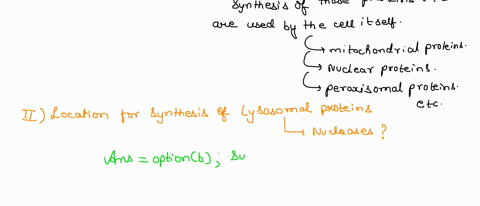 synthesis of those proteins
are used by the cell itself.
mitochondrial proteins.
Nuclear proteins.
peroxisomal proteins.
etc.
II) Location for synthesis of Lysosomal proteins
Nucleases ?
Ans = option(b); su